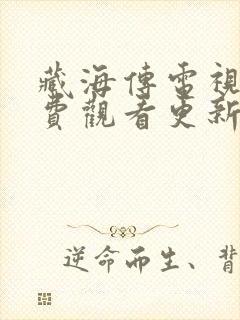 藏海傳電視
費觀看更新
逆命而生、背